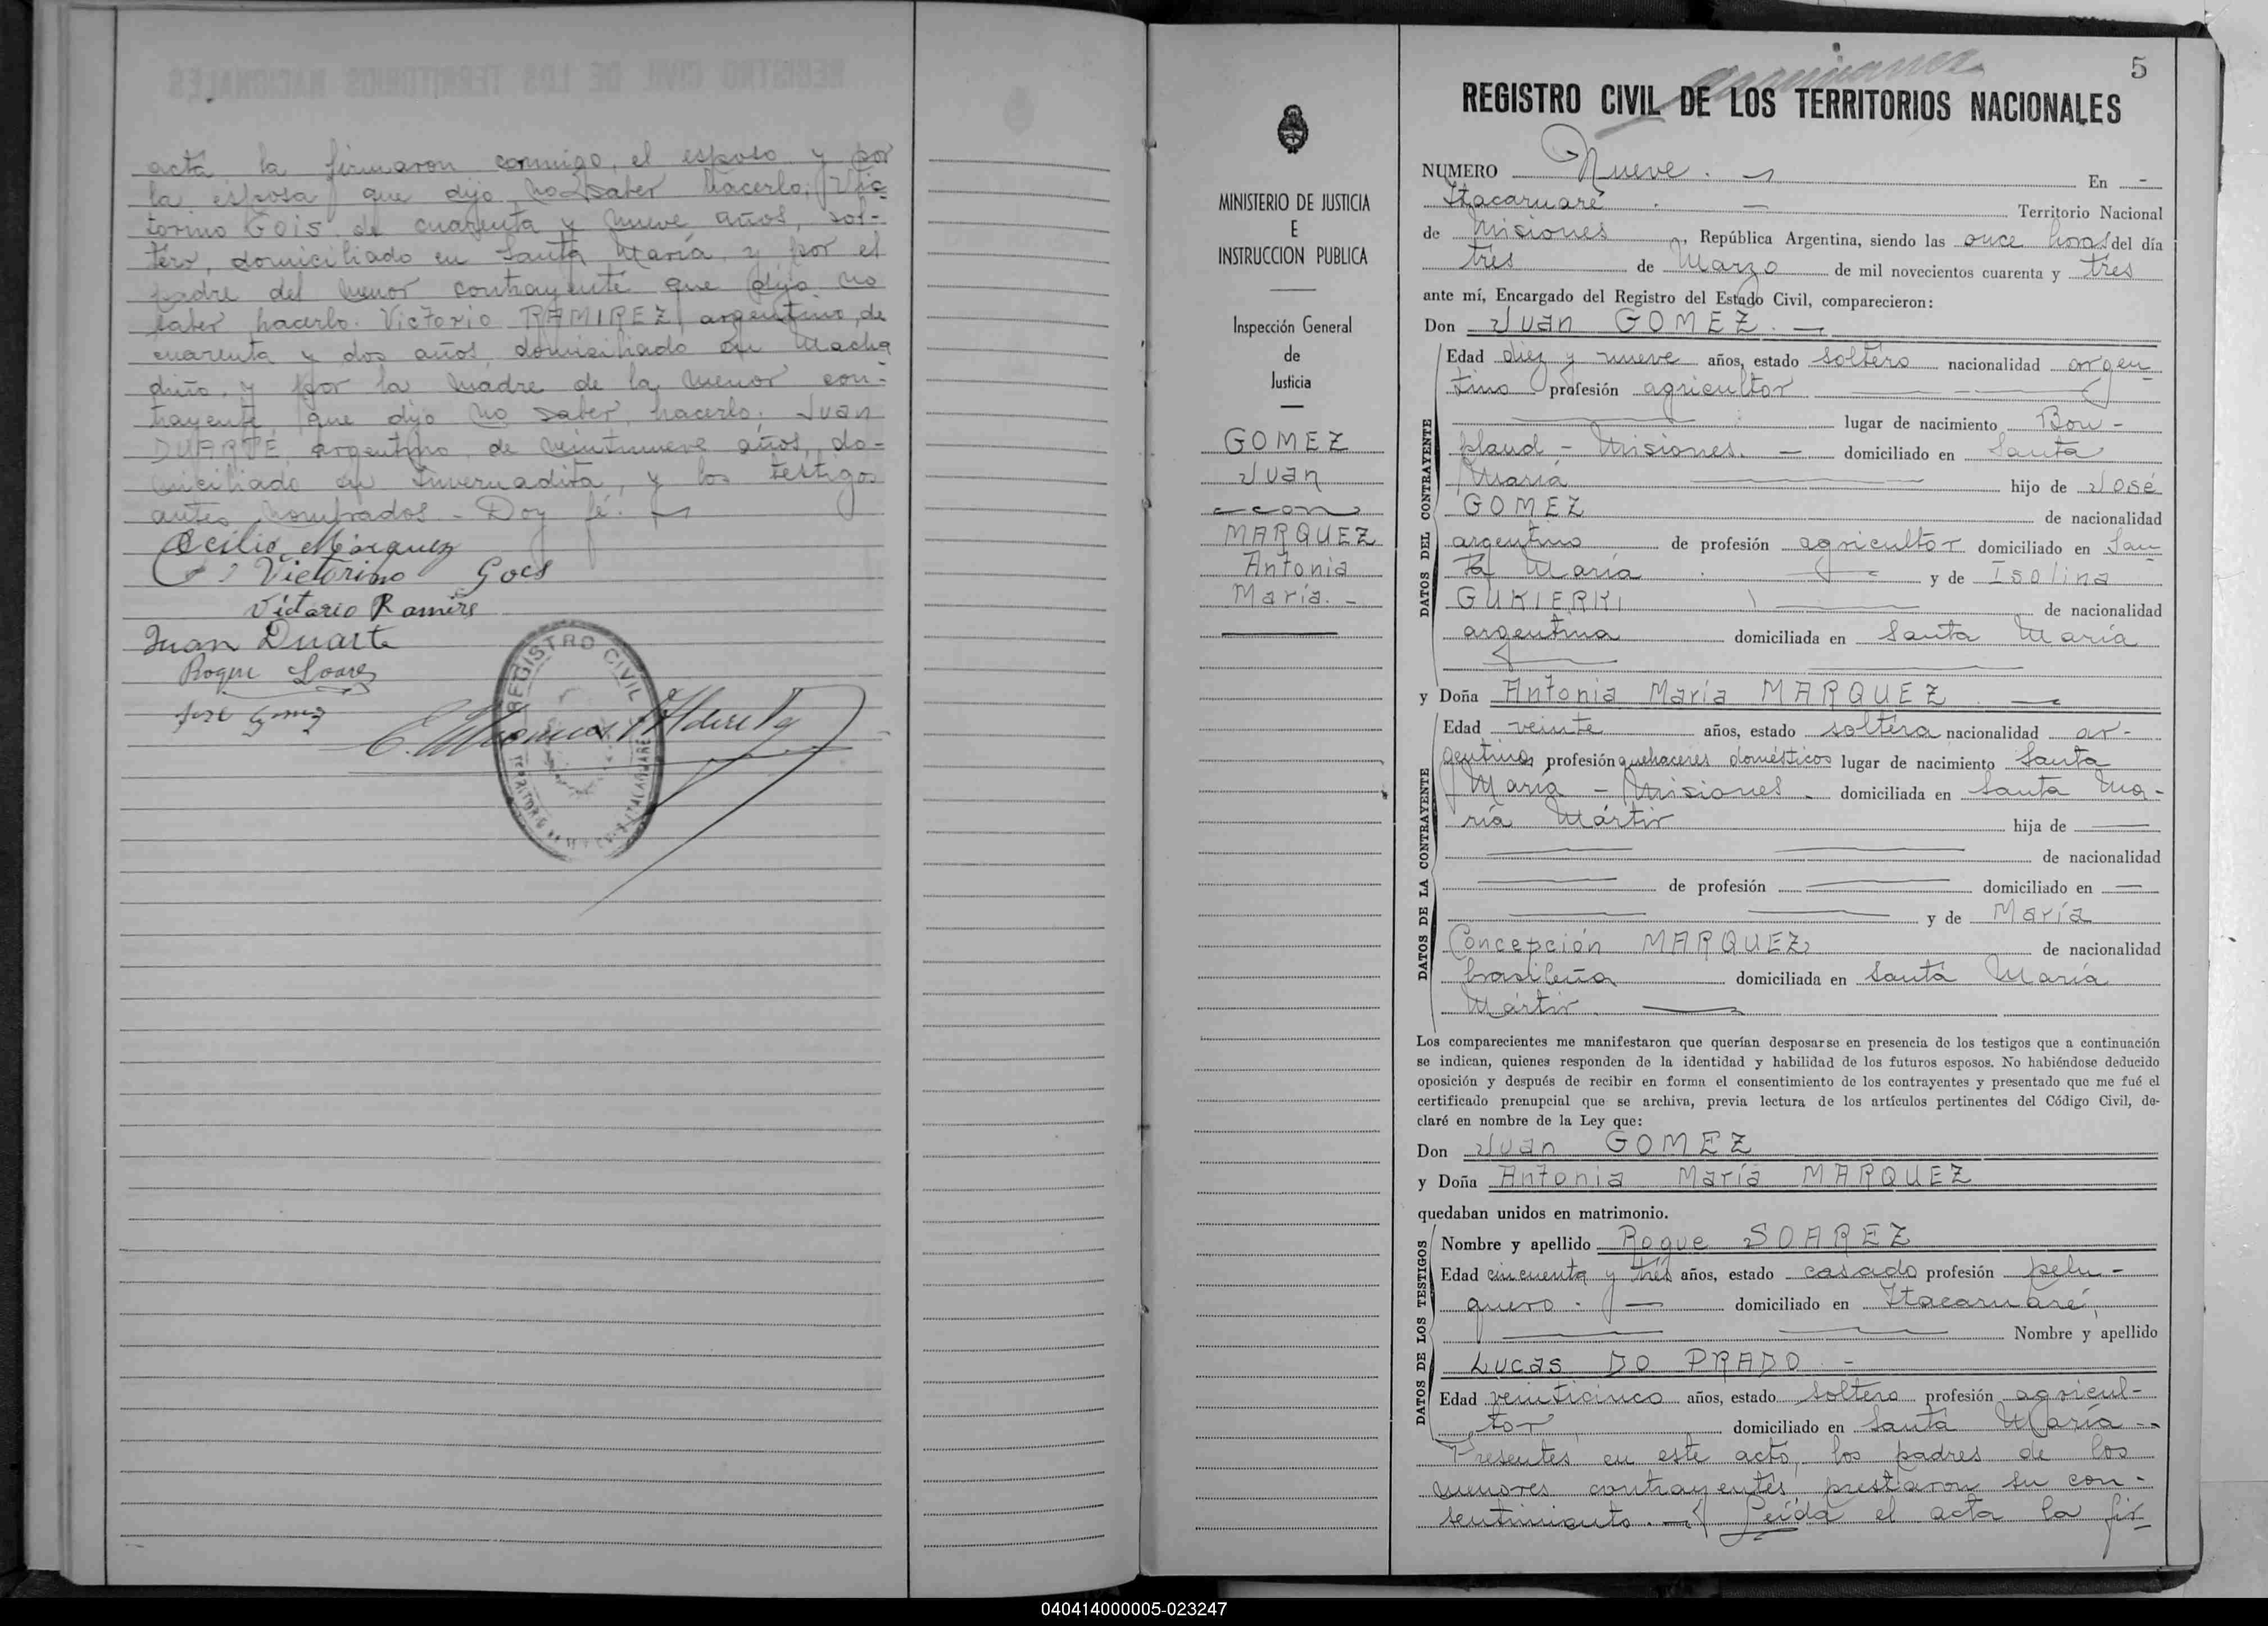 acta la firmaron conmigo, el esposo y por
la esposa que dijo no saber hacerlo, Vic-
torino Gois de cuarenta y nueve años, sol-
tero, domiciliado en Santa María, y por el
padre del menor contrayente que dijo no
saber hacerlo. Victorio RAMIREZ, argentino, de
cuarenta y dos años, domiciliado en Macha
diño, y por la madre de la menor con-
trayente que dijo no saber hacerlo. Juan
DUARTE, argentino de veintinueve años, do-
miciliado en Invernadita, y los testigos
antes nombrados - Doy fé.
Ocilio Márquez
Victorino Goes
Victorio Ramires
Juan Duarte
Roque Soarez
José Gomez
REGISTRO CIVIL
REGISTRO CIVIL DE LOS TERRITORIOS NACIONALES
5
MINISTERIO DE JUSTICIA
E
INSTRUCCION PUBLICA
Inspección General
de
Justicia
GOMEZ
Juan
con
MARQUEZ
Antonia
María. -
NUMERO Nueve. En -
Itacaruaré. Territorio Nacional
de Misiones, República Argentina, siendo las once horas del día
tres de Marzo de mil novecientos cuarenta y tres
ante mí, Encargado del Registro del Estado Civil, comparecieron:
Don Juan GOMEZ. -
DATOS DEL CONTRAYENTE
Edad diez y nueve años, estado soltero nacionalidad argen-
tino profesión agricultor
lugar de nacimiento Bon-
pland - Misiones. - domiciliado en Santa
María hijo de José
GOMEZ de nacionalidad
argentino de profesión agricultor domiciliado en San-
ta María y de Isolina
GUKIERKI de nacionalidad
argentina domiciliada en Santa María
y Doña Antonia María MARQUEZ. -
DATOS DE LA CONTRAYENTE
Edad veinte años, estado soltera nacionalidad ar-
gentina profesión quehaceres domésticos lugar de nacimiento Santa
María - Misiones - domiciliada en Santa Ma-
ría Mártir hija de
de nacionalidad
de profesión domiciliado en
y de María
Concepción MARQUEZ de nacionalidad
brasileña domiciliada en Santa María
Mártir.
Los comparecientes me manifestaron que querían desposarse en presencia de los testigos que a continuación
se indican, quienes responden de la identidad y habilidad de los futuros esposos. No habiéndose deducido
oposición y después de recibir en forma el consentimiento de los contrayentes y presentado que me fué el
certificado prenupcial que se archiva, previa lectura de los artículos pertinentes del Código Civil, de-
claré en nombre de la Ley que:
Don Juan GOMEZ
y Doña Antonia María MARQUEZ
quedaban unidos en matrimonio.
DATOS DE LOS TESTIGOS
Nombre y apellido Roque SOAREZ
Edad cincuenta y tres años, estado casado profesión pelu-
quero. - domiciliado en Itacaruaré,
Nombre y apellido
Lucas DO PRADO. -
Edad veinticinco años, estado soltero profesión agricul-
tor domiciliado en Santa María -
Presentes en este acto, los padres de los
menores contrayentes prestaron su con-
sentimiento. - Leída el acta la fir-
040414000005-023247